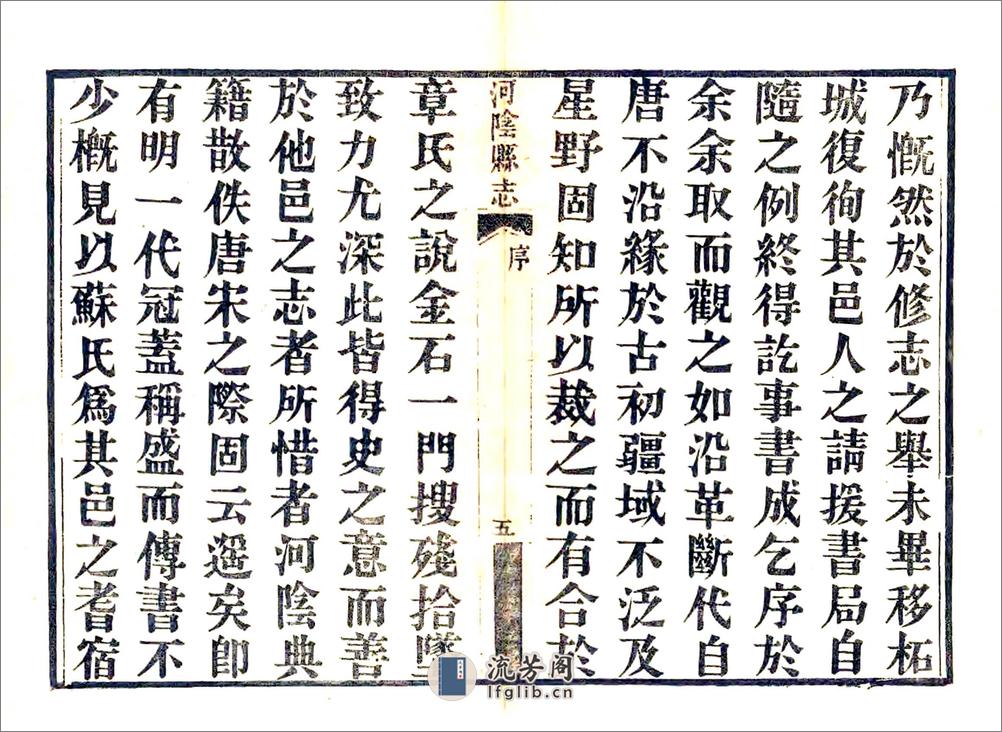 乃慨然於修志之舉未畢移柘
城復徇其邑人之請援書局自
隨之例終得訖事書成乞序於
余余取而觀之如沿革斷代自
唐不沿緣於古初疆域不泛及
星野固知所以裁之而有合於
河陰縣志
序
五
章氏之說金石一門搜殘拾墜
致力尤深此皆得史之意而善
於他邑之志者所惜者河陰典
籍散佚唐宋之際固云遥矣即
有明一代冠蓋稱盛而傳書不
少概見以蘇氏爲其邑之耆宿
流芳阁
lfglib.cn